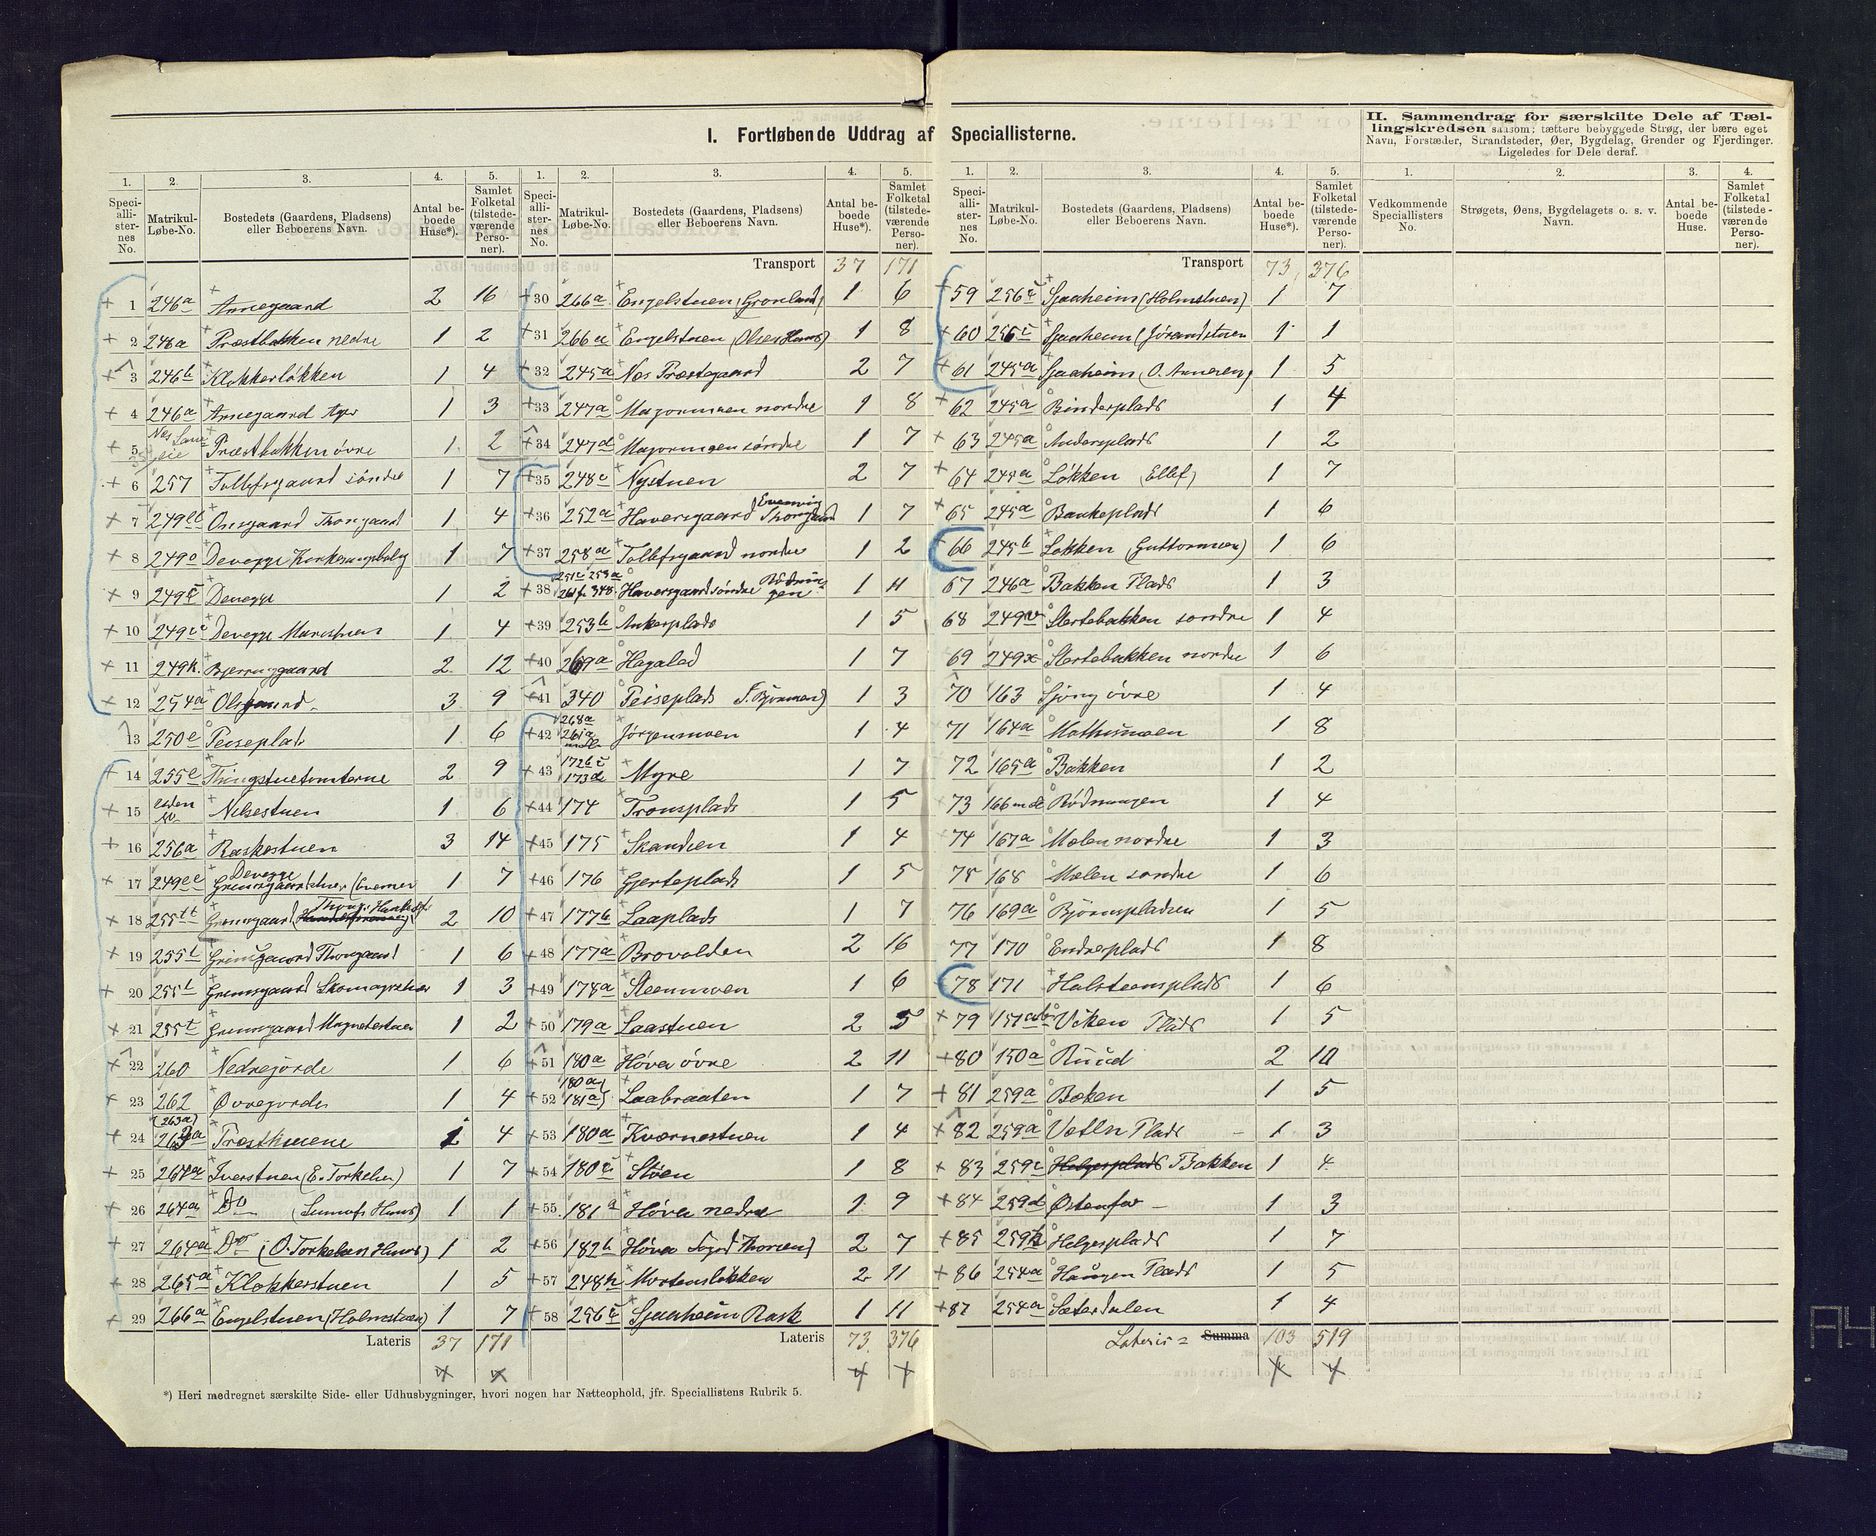 I. Fortløbende Uddrag af Speciallisterne.
II. Sammendrag for særskilte Dele af Tæl-
lingskredsen saasom: tættere bebyggede Strøg, der bære eget
Navn, Forstæder, Strandsteder, Øer, Bygdelag, Grender og Fjerdinger.
Ligeledes for Dele deraf.
1. 2. 3. 4. 5.
Speciallisternes No. Matrikul-Løbe-No. Bostedets (Gaardens, Pladsens) eller Beboerens Navn. Antal beboede Huse*). Samlet Folketal (tilstedeværende Personer).
1 246a Arnegaard 2 16
2 248a Præstbakken nedre 1 2
3 246b Klokkerløkken 1 4
4 246a Arnegaard 1 3
5 Præstbakken øvre 1 2
6 257 Tollefsgaard søndre 1 7
7 Onsgaard Thongaard 1 4
8 249a Devegge 1 7
9 249c Devegge 1 2
10 Devegge 1 4
11 249k Bjernigaard 2 12
12 254a Olsgaard 3 9
13 250e Peiseplads 1 6
14 255e Thingstuetomterne 2 9
15 Nilsestuen 1 6
16 256a Raskestuen 3 14
17 249ee Devegge Grimsgaardstuen 1 7
18 255tt Grimsgaard 2 10
19 255t Grimsgaard Thongaard 1 6
20 255t Grimsgaard 1 3
21 255t Grimsgaard 1 2
22 260 Nedrejorde 1 6
23 262 Øvrejorde 1 4
24 (263a) Præsthuene 1 4
25 264a Iverstuen (E. Torkelsen) 1 7
26 264a Do (Hans) 1 1
27 264a Do (O. Torkelsen Huus) 1 2
28 265a Klokkerstuen 1 5
29 266a Engelstuen (Holmstuen) 1 7
Lateris 37 171
1. 2. 3. 4. 5.
Speciallisternes No. Matrikul-Løbe-No. Bostedets (Gaardens, Pladsens) eller Beboerens Navn. Antal beboede Huse*). Samlet Folketal (tilstedeværende Personer).
Transport 37 171
30 266a Engelstuen (Gronland) 1 6
31 266a Engelstuen (Olsen Huus) 1 8
32 245a Nes Præstegaard 2 7
33 247a Majormoen nordre 1 8
34 247d Majormoen søndre 1 7
35 248c Nystuen 2 7
36 252a Haversgaard 1 7
37 258a Tollefsgaard nordre 1 2
251c 253a
38 Haversgaard søndre 1 11
39 253b Ankerplads 1 5
40 269a Hagaled 1 7
41 340 Peiseplads 1 3
268a
42 261a Jørgenmoen 1 4
172bc
43 173d Myre 1 7
44 174 Tronsplads 1 5
45 175 Skandsen 1 4
46 176 Gjerteplads 1 5
47 177b Laaplads 1 7
48 177a Brovolden 2 16
49 178a Steenmoen 1 6
50 179a Laastuen 2 5
51 180a Høva øvre 2 11
180a
52 181a Laabraaten 1 7
53 180a Kværnestuen 1 4
54 180c Støen 1 8
55 181a Høva nedre 1 9
56 182b Høva 2 7
57 248h Mortensløkken 2 11
58 256c Sjaaheim Rask 1 11
Lateris 73 376
1. 2. 3. 4. 5.
Speciallisternes No. Matrikul-Løbe-No. Bostedets (Gaardens, Pladsens) eller Beboerens Navn. Antal beboede Huse*). Samlet Folketal (tilstedeværende Personer).
Transport 73 376
59 256c Sjaaheim (Holmstuen) 1 7
60 256c Sjaaheim (Jørandstuen 1 1
61 245a Sjaaheim (O. Arnesen) 1 5
62 245a Binderplads 1 4
63 245a Andersplads 1 2
64 245a Løkken (Ellef) 1 7
65 245a Bankeplads 1 6
66 245b Løkken (Guttormsen) 1 6
67 246a Bakken Plads 1 3
68 249v Stertebakken søndre 1 4
69 249x Stertebakken nordre 1 6
70 163 Sjong øvre 1 4
71 164a Mathismoen 1 8
72 165a Bakken 1 2
73 166 Rødningen 1 4
74 167a Mælen nordre 1 3
75 168 Mælen søndre 1 6
76 169a Bjørnspladsen 1 5
77 170 Endreplads 1 8
78 171 Halsteensplads 1 6
79 Viken Plads 1 5
80 150a Ruud 2 10
81 259a Bæken 1 5
82 259a Vetln Plads 1 3
83 259c Helgesplads Bakken 1 4
84 259d Østenfor 1 3
85 Helgesplads 1 7
86 254a Haugen Plads 1 5
87 254a Sæterdalen 1 4
Lateris = Summa 103 519
1. 2. 3. 4.
Vedkommende Speciallisters No. Strøgets, Øens, Bygdelagets o. s. v. Navn. Antal beboede Huse. Samlet Folketal (tilstedeværende Personer).
*) Heri medregnet særskilte Side- eller Udhusbygninger, hvori nogen har Natteophold, jfr. Speciallistens Rubrik 5.